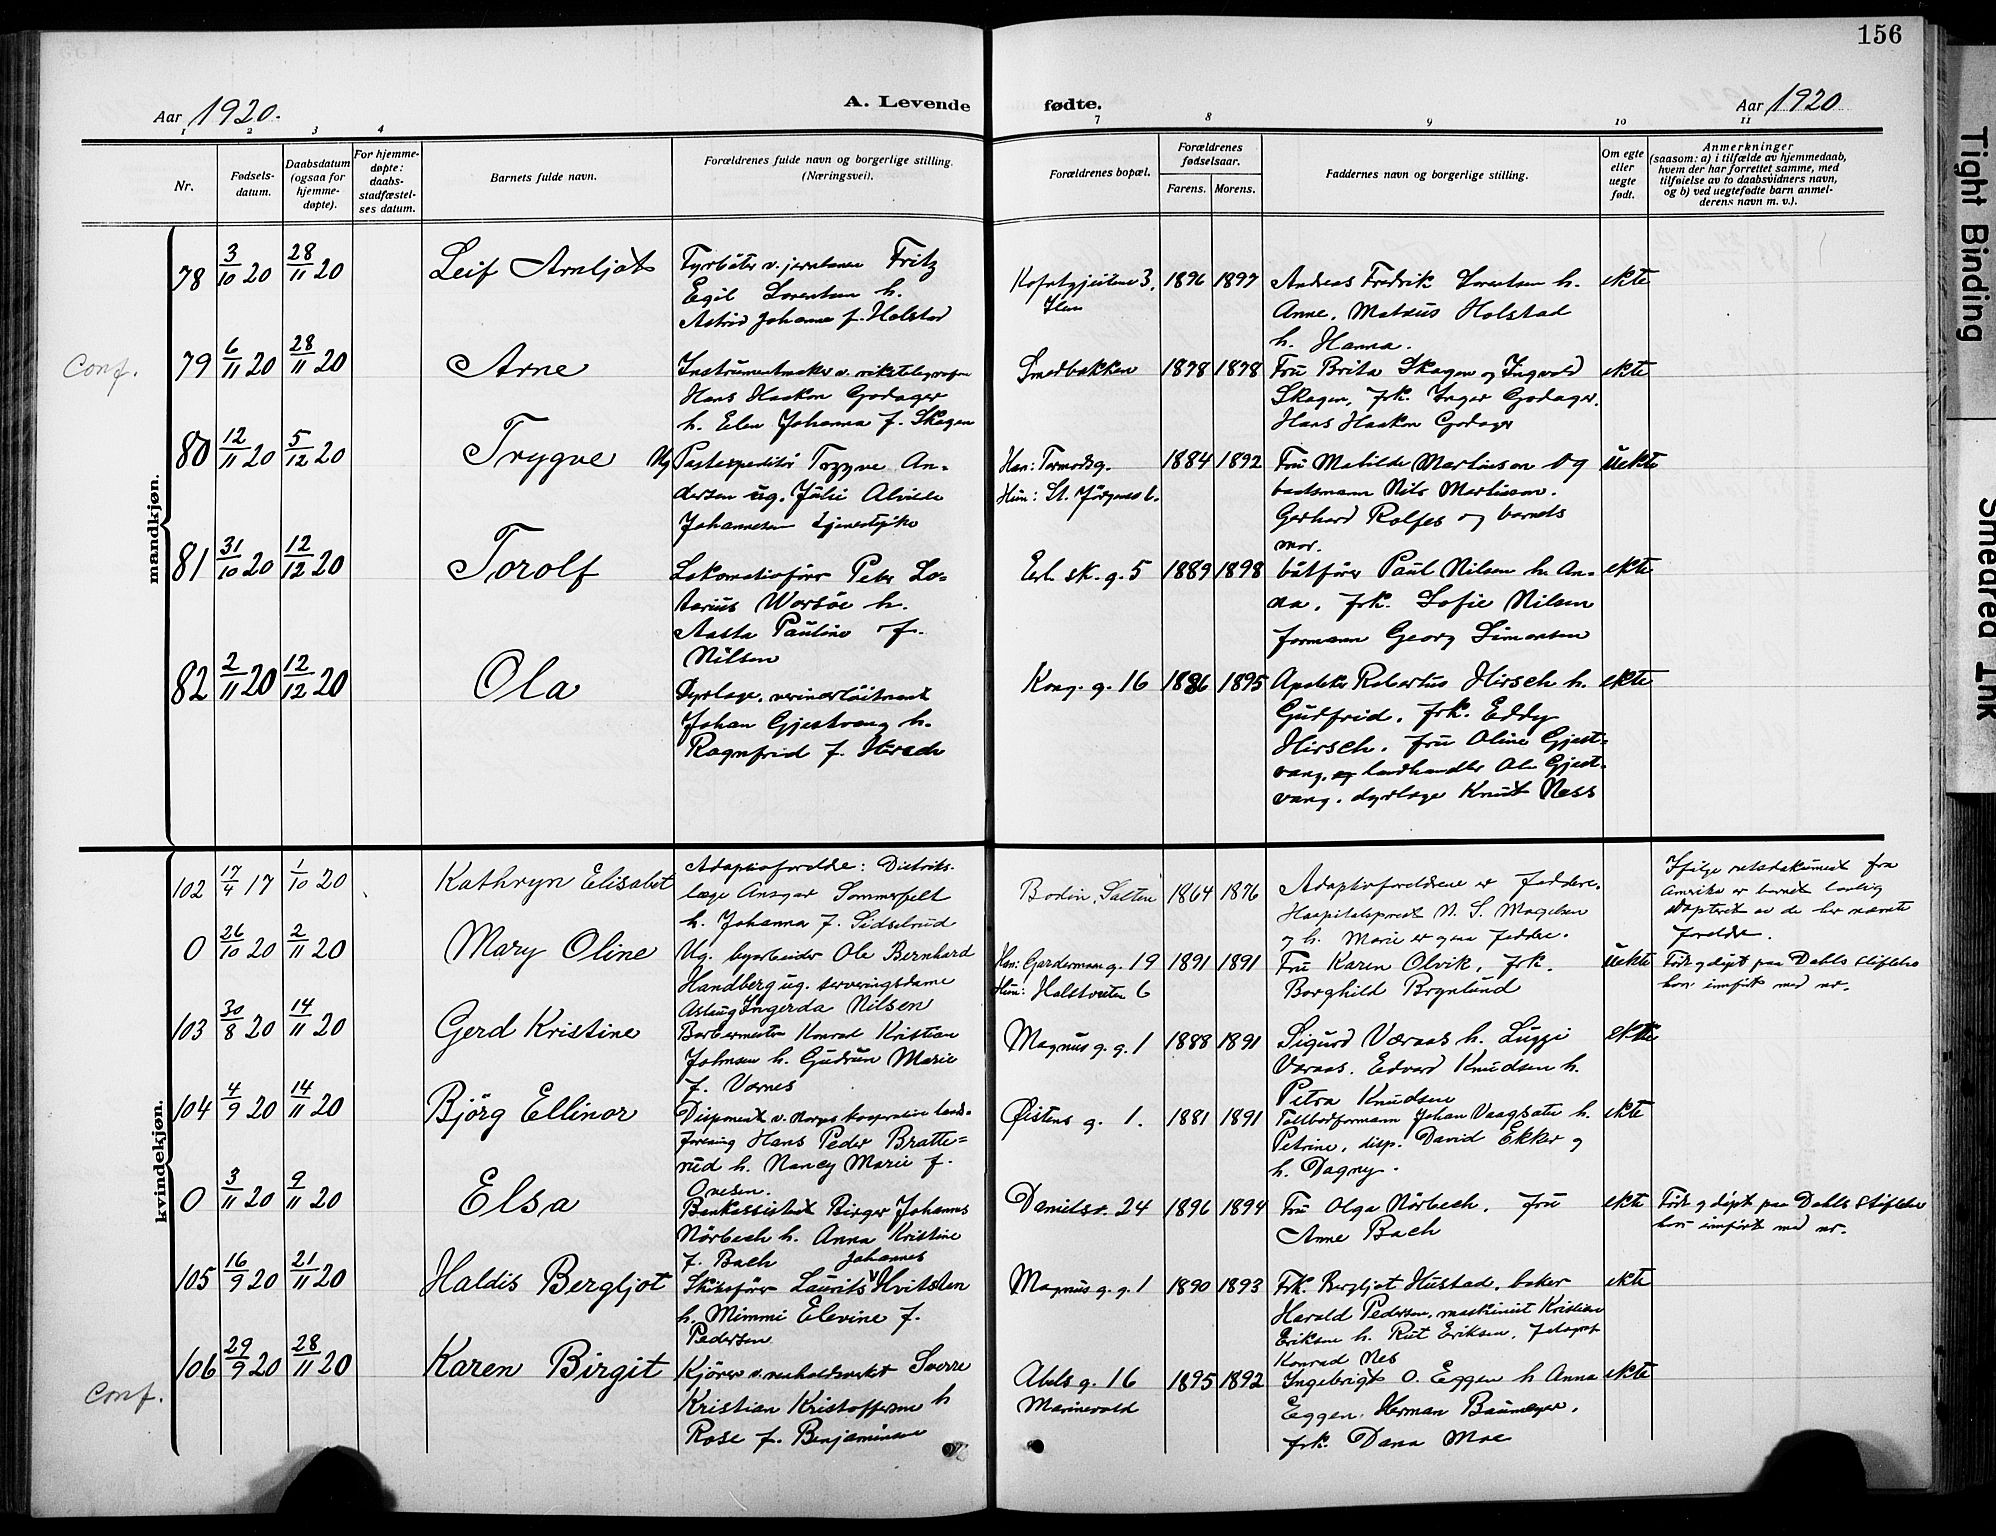 156
Aar 1920.
A. Levende fødte.
Aar 1920
1 2 3 4 7 8 9 10 11
Nr.
Fødsels-
datum.
Daabsdatum
(ogsaa for
hjemme-
døpte).
For hjemme-
døpte:
daabs-
stadfæstel-
ses datum.
Barnets fulde navn.
Forældrenes fulde navn og borgerlige stilling.
(Næringsvei).
Forældrenes bopæl.
Forældrenes
fødselsaar.
Farens. Morens.
Faddernes navn og borgerlige stilling.
Om egte
eller
uegte
født.
Anmerkninger
(saasom: a) i tilfælde av hjemmedaab,
hvem der har forrettet samme, med
tilføielse av to daabsvidners navn,
og b) ved uegtefødte barn anmel-
derens navn m. v.).
mandkjøn.
78 3/10 20 28/11 20 Leif Arnljot
Fyrbøter v. jernbanen Fritz
Egil Lorentsen h.
Astrid Johanne f. Holstad
3, Ilen
1896 1897
Andreas Fredrik Lorentsen h.
Anne, Matæus Holstad
h. Hanna.
ekte
Conf.
79 6/11 20 28/11 20 Arne
Instrumentmaker v. rikstelegrafen
Hans Haakon Godager
h. Elen Johanna f. Skagen
Smedbakken
1898 1898
Fru Brita Skagen og Ingvald
Skagen, frk. Inger Godager.
Hans Haakon Godager
ekte
80 12/11 20 5/12 20 Trygve
Ug Postekspeditör Trygve An-
dersen ug. Julie Alvilde
Johannesen tjenestepike
Han: Tormodsg.
Hun: St. Jörgensv. 6.
1884 1892
Fru Matilde Martinsen og
baatsmann Nils Martinsen.
Gerhard Rolfes og barnets
mor.
uekte
81 31/10 20 12/12 20 Torolf
Lokomotivförer Peter Lo-
tarius Worsöe h.
Aasta Pauline f.
Nilsen
Erl. sk. g. 5
1889 1898
båtförer Paul Nilsen h. An-
na, frk. Sofie Nilsen
formann Georg Simonsen
ekte
82 2/11 20 12/12 20 Ola
Dyrlæge, veterinærlöitnant
Johan Gjestvang h.
Ragnfrid f. Hirsch
Kong. g. 16
1886 1895
Apoteker Robertus Hirsch h.
Gudfrid, frk. Eddy
Hirsch, fru Oline Gjest-
vang, og landhandler Ole Gjest-
vang. dyrlæge Knut Ness
ekte
kvindekjøn.
102 17/4 17 1/10 20 Kathryn Elisabet
Adoptivforeldre: Distrikts-
læge Ansgar Sommerfelt
h. Johanna f. Sidselrud
Bodin, Salten
1864 1876
Adoptivforeldrene er faddere.
Hospitalsprest N. S. Magelsen
og h. Marie er ogsaa faddere.
Ifölge retsdokument fra
Amerika er barnet lovlig
adopteret av de her nævnte
foreldre.
0 26/10 20 2/11 20 Mary Oline
Ug. byarbeider Ole Bernhard
Handberg ug. serveringsdame
Aslaug Ingerda Nilsen
Han: Gardermoensg. 19
Hun: Halstveiten 6
1891 1891
Fru Karen Olvik, frk.
Borghild Brynlund
uekte
Født og döpt paa Dahls Stiftelse
hvor innført med nr.
103 30/8 20 14/11 20 Gerd Kristine
Barbermester Konrad Kristian
Johnsen h. Gudrun Marie
f. Varnes
Magnus g. g. 1
1888 1891
Sigurd Væraas h. Luggi
Væraas. Edvard Knudsen h.
Petra Knudsen
ekte
104 4/9 20 14/11 20 Björg Ellinor
Disponent v. Norges kooperative lands-
forening Hans Peder Bratte-
rud h. Nancy Marie f.
Onesen.
Øistens g. 1.
1881 1891
Tollbodformann Johan Vaagsæter h.
Petrine, disp. David Ekker og
h. Dagny.
ekte
0 3/11 20 9/11 20 Elsa
Bankassistent Birger Johannes
Nörbech h. Anna Kristine
f. Bach
Danielsv. 24
1896 1894
Fru Olga Nörbech, fru
Anne Bach
ekte
Født og döpt paa Dahls Stiftelse
hvor innført med nr.
105 16/9 20 21/11 20 Haldis Bergljot
Skibsförer Laurits Johannes Hvitsten
h. Mimmi Elevine f.
Pedersen
Magnus g. g. 1
1890 1893
Frk. Bergljot Hustad, baker
Harald Pedersen, maskinist Kristian
Eriksen h. Rut Eriksen,
Konrad Nes
ekte
106 29/9 20 28/11 20 Karen Birgit
Conf.
Kjörer v. renholdsverket Sverre
Kristian Kristoffersen h
Rose f. Benjaminsen
Abels g. 16
Marinevold
1895 1892
Ingebrigt O. Eggen h Anna
Eggen. Herman Baumeyer,
frk. Dana Moe
ekte
Tight Binding
Smeared Ink